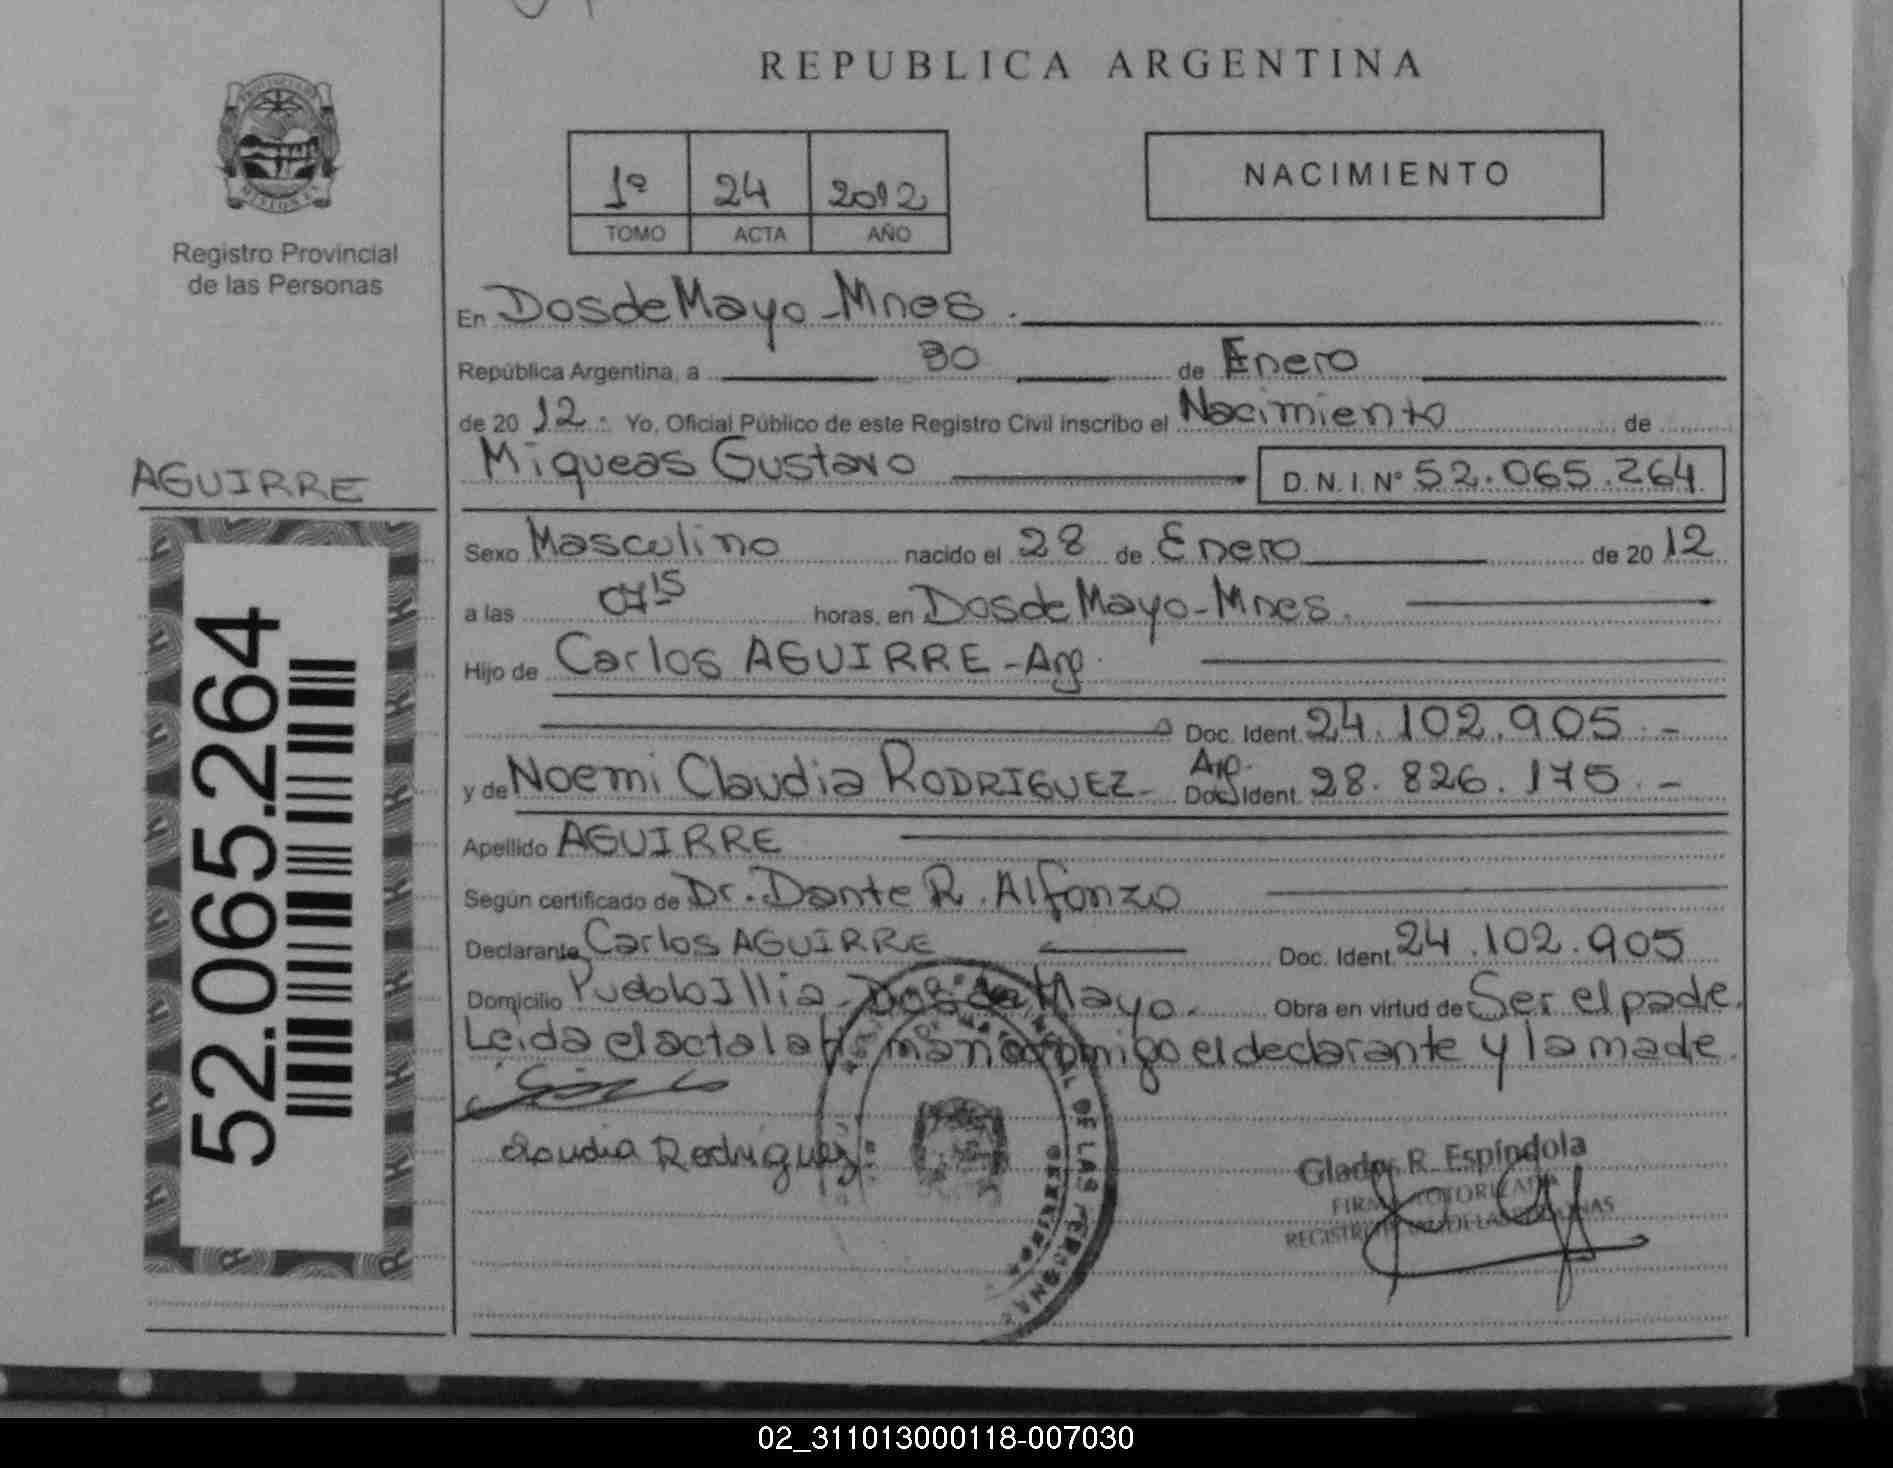 REPUBLICA ARGENTINA
1º 24 2012
TOMO ACTA AÑO
NACIMIENTO
Registro Provincial
de las Personas
AGUIRRE
52.065.264
En Dos de Mayo - Mnes.
República Argentina, a 30 de Enero
de 2012.- Yo, Oficial Público de este Registro Civil inscribo el Nacimiento de
Miqueas Gustavo D.N.I. Nº 52.065.264
Sexo Masculino nacido el 28 de Enero de 2012
a las 07 15 horas, en Dos de Mayo - Mnes.
Hijo de Carlos AGUIRRE - Arg.
Doc. Ident. 24.102.905.-
y de Noemi Claudia RODRIGUEZ - Arg. Doc. Ident. 28.826.175.-
Apellido AGUIRRE
Según certificado de Dr. Dante R. Alfonzo
Declarante Carlos AGUIRRE Doc. Ident. 24.102.905
Domicilio Pueblo Illia - Dos de Mayo. Obra en virtud de Ser el padre.
Leida el acta la firman conmigo el declarante y la madre.
Claudia Rodriguez
Gladys R. Espíndola
FIRMA AUTORIZADA
REGISTRO DE LAS PERSONAS
02_311013000118-007030